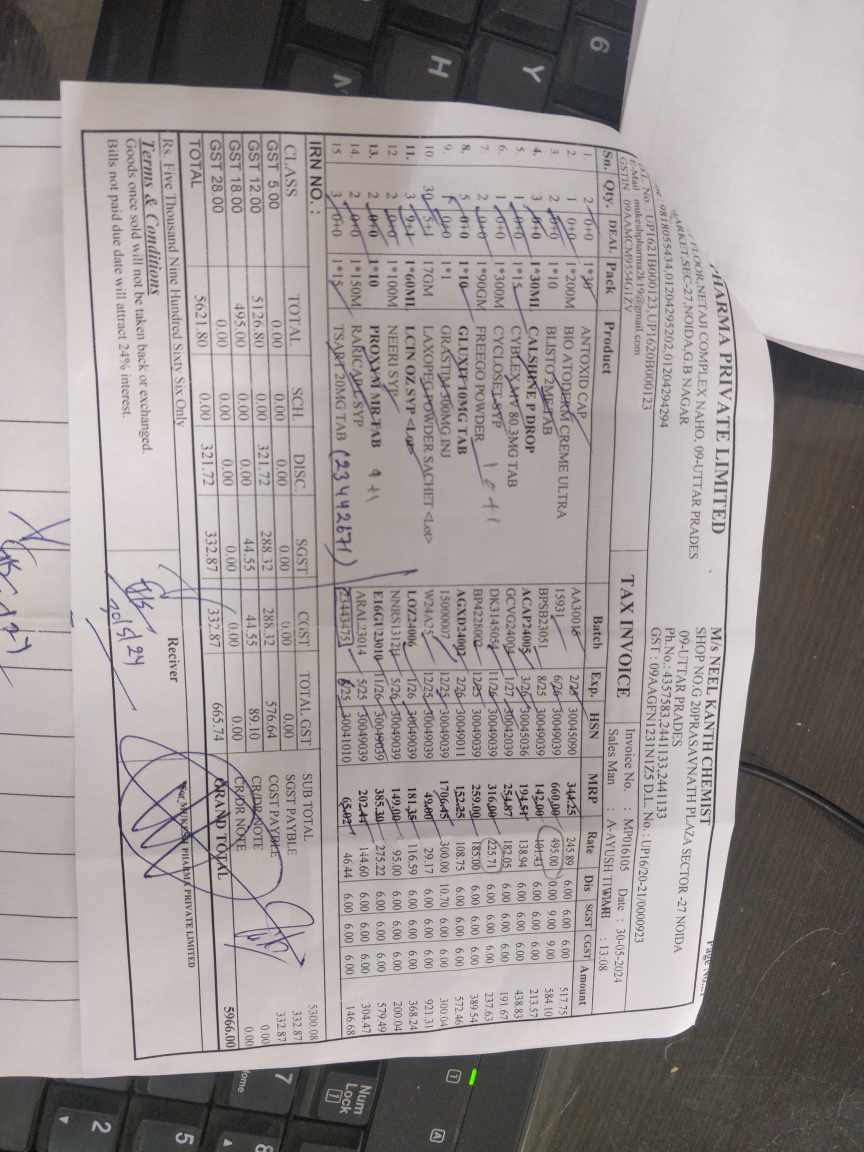 PHARMA PRIVATE LIMITED
FLOOR,NETAJI COMPLEX NAHO, 09-UTTAR PRADES
MARKET,SEC-27,NOIDA,G.B NAGAR
9818055434,01204295202,01204294294
D.L. No. : UP1621B000123,UP1620B000123
E-Mail : mukeshpharma2k19@gmail.com
GSTIN : 09AAMCM9554G1ZV
TAX INVOICE
M/s NEEL KANTH CHEMIST
SHOP NO.G 20PRASAVNATH PLAZA SECTOR -27 NOIDA
09-UTTAR PRADES
Ph.No.: 4357583,2441133,2441133
GST : 09AAGFN1231N1Z5 D.L. No. : UP16/20-21/0000923
Invoice No. : MP016105 Date : 30-05-2024
Sales Man : A-AYUSH TIWARI : 13:08
Sn. Qty. DEAL Pack Product Batch Exp. HSN MRP Rate Dis SGST CGST Amount
1. 2 0+0 ANTOXID CAP 2/25 30045090 344.25 245.89 6.00 6.00 6.00 517.75
2. 1 0+0 1*200M BIO ATODERM CREME ULTRA 15931 6/26 30049039 660.00 495.00 0.00 9.00 9.00 584.10
3. 2 0+0 1*10 TAB BPSB23051 8/25 30049039 142.00 101.43 6.00 6.00 6.00 213.57
4. 3 0+0 1*30ML CALSHINE P DROP ACAP24005 3/26 30045036 194.51 138.94 6.00 6.00 6.00 438.83
5. 1 0+0 1*15 80.3MG TAB GCVG24004 1/27 30042039 254.87 182.05 6.00 6.00 6.00 191.67
6. 1 0+0 1*300M SYP 11/26 30049039 316.00 225.71 6.00 6.00 6.00 237.63
7. 2 0+0 1*90GM FREEGO POWDER 12/25 30049039 259.00 185.00 6.00 6.00 6.00 389.54
8. 5 0+0 1*10 10MG TAB AGXD24002 2/26 30049011 152.25 108.75 6.00 6.00 6.00 572.46
9. 1 0+0 1*1 300MG INJ 15000007 12/25 30049039 1706.45 300.00 10.70 6.00 6.00 300.04
10. 30 5+1 17GM LAXOPEG POWDER SACHET <Lot> W24A25 12/25 30049039 49.00 29.17 6.00 6.00 6.00 921.31
11. 3 9+1 1*60ML LCIN OZ SYP <Lot> LOZ24006 1/26 30049039 181.35 116.59 6.00 6.00 6.00 368.24
12. 2 0+0 1*100M NEERI SYP 5/26 30049039 149.00 95.00 6.00 6.00 6.00 200.04
13. 2 0+0 1*10 MR TAB 9+1 E16GU23010 11/26 30049039 385.30 275.22 6.00 6.00 6.00 579.49
14. 2 0+0 1*150M SYP ARAL23014 5/25 30049039 202.44 144.60 6.00 6.00 6.00 304.47
15 3 0+0 1*15 TSART 20MG TAB (23442671) 23443475 6/25 30041010 65.02 46.44 6.00 6.00 6.00 146.68
10+1
IRN NO. :
CLASS TOTAL SCH. DISC. SGST CGST TOTAL GST
GST 5.00 0.00 0.00 0.00 0.00 0.00 0.00
GST 12.00 5126.80 0.00 321.72 288.32 288.32 576.64
GST 18.00 495.00 0.00 0.00 44.55 44.55 89.10
GST 28.00 0.00 0.00 0.00 0.00 0.00 0.00
TOTAL 5621.80 0.00 321.72 332.87 332.87 665.74
SUB TOTAL 5300.08
SGST PAYBLE 332.87
CGST PAYBLE 332.87
CR/DR NOTE 0.00
CR/DR NOTE 0.00
GRAND TOTAL 5966.00
Rs. Five Thousand Nine Hundred Sixty Six Only
Terms & Conditions
Goods once sold will not be taken back or exchanged.
Bills not paid due date will attract 24% interest.
Reciver
30/5/24
For MUKESH PHARMA PRIVATE LIMITED
6
Y
H
N
Num
Lock
1
7
Home
8
A
5
2